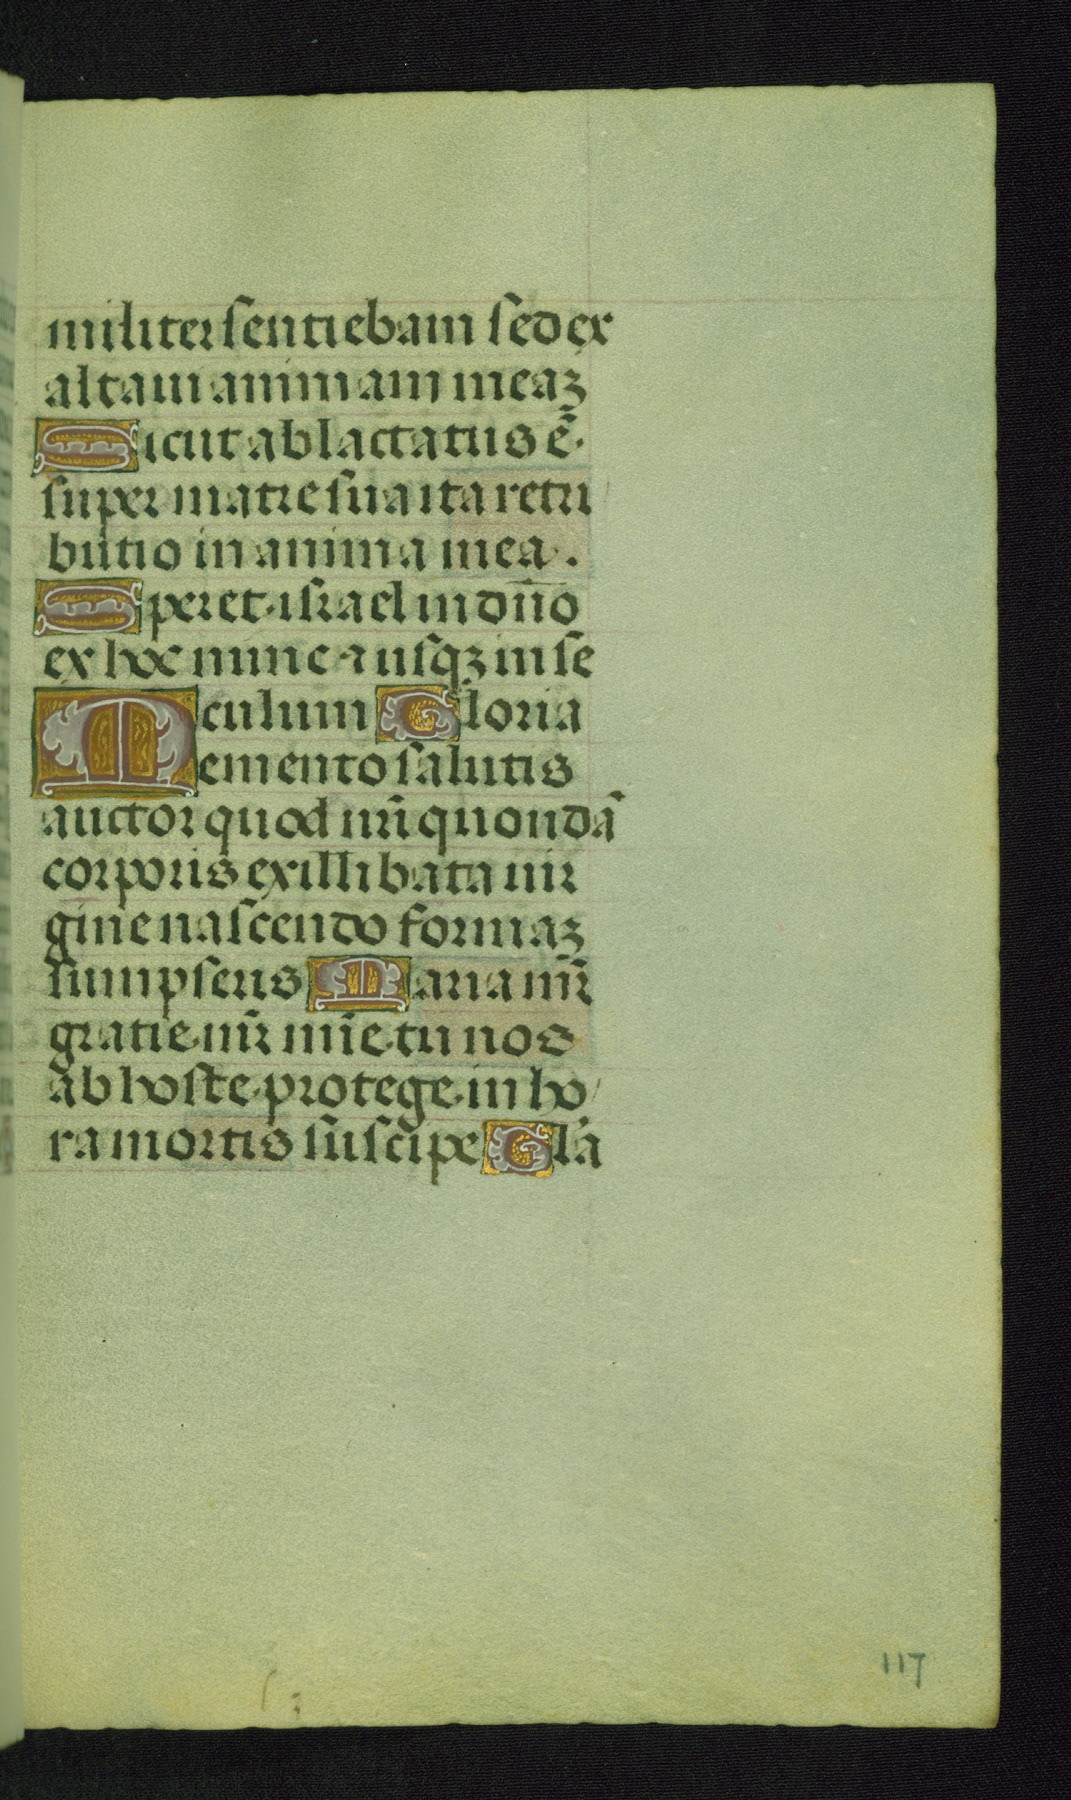 militer sentiebam sed ex
altaui animam meaꝫ
Sicut ablactatus ē·
super matre sua ita retri
butio in anima mea.
Speret israel in dn̄o
ex hoc nunc ⁊ usqꝫ in se
culum Gloria
Memento salutis
auctor quod nr̄i quondā
corporis ex illibata uir
gine nascendo formaꝫ
sumpseris Maria mr̄
gratie mr̄ mīe tu nos
ab hoste protege in ho
ra mortis suscipe Gla
117